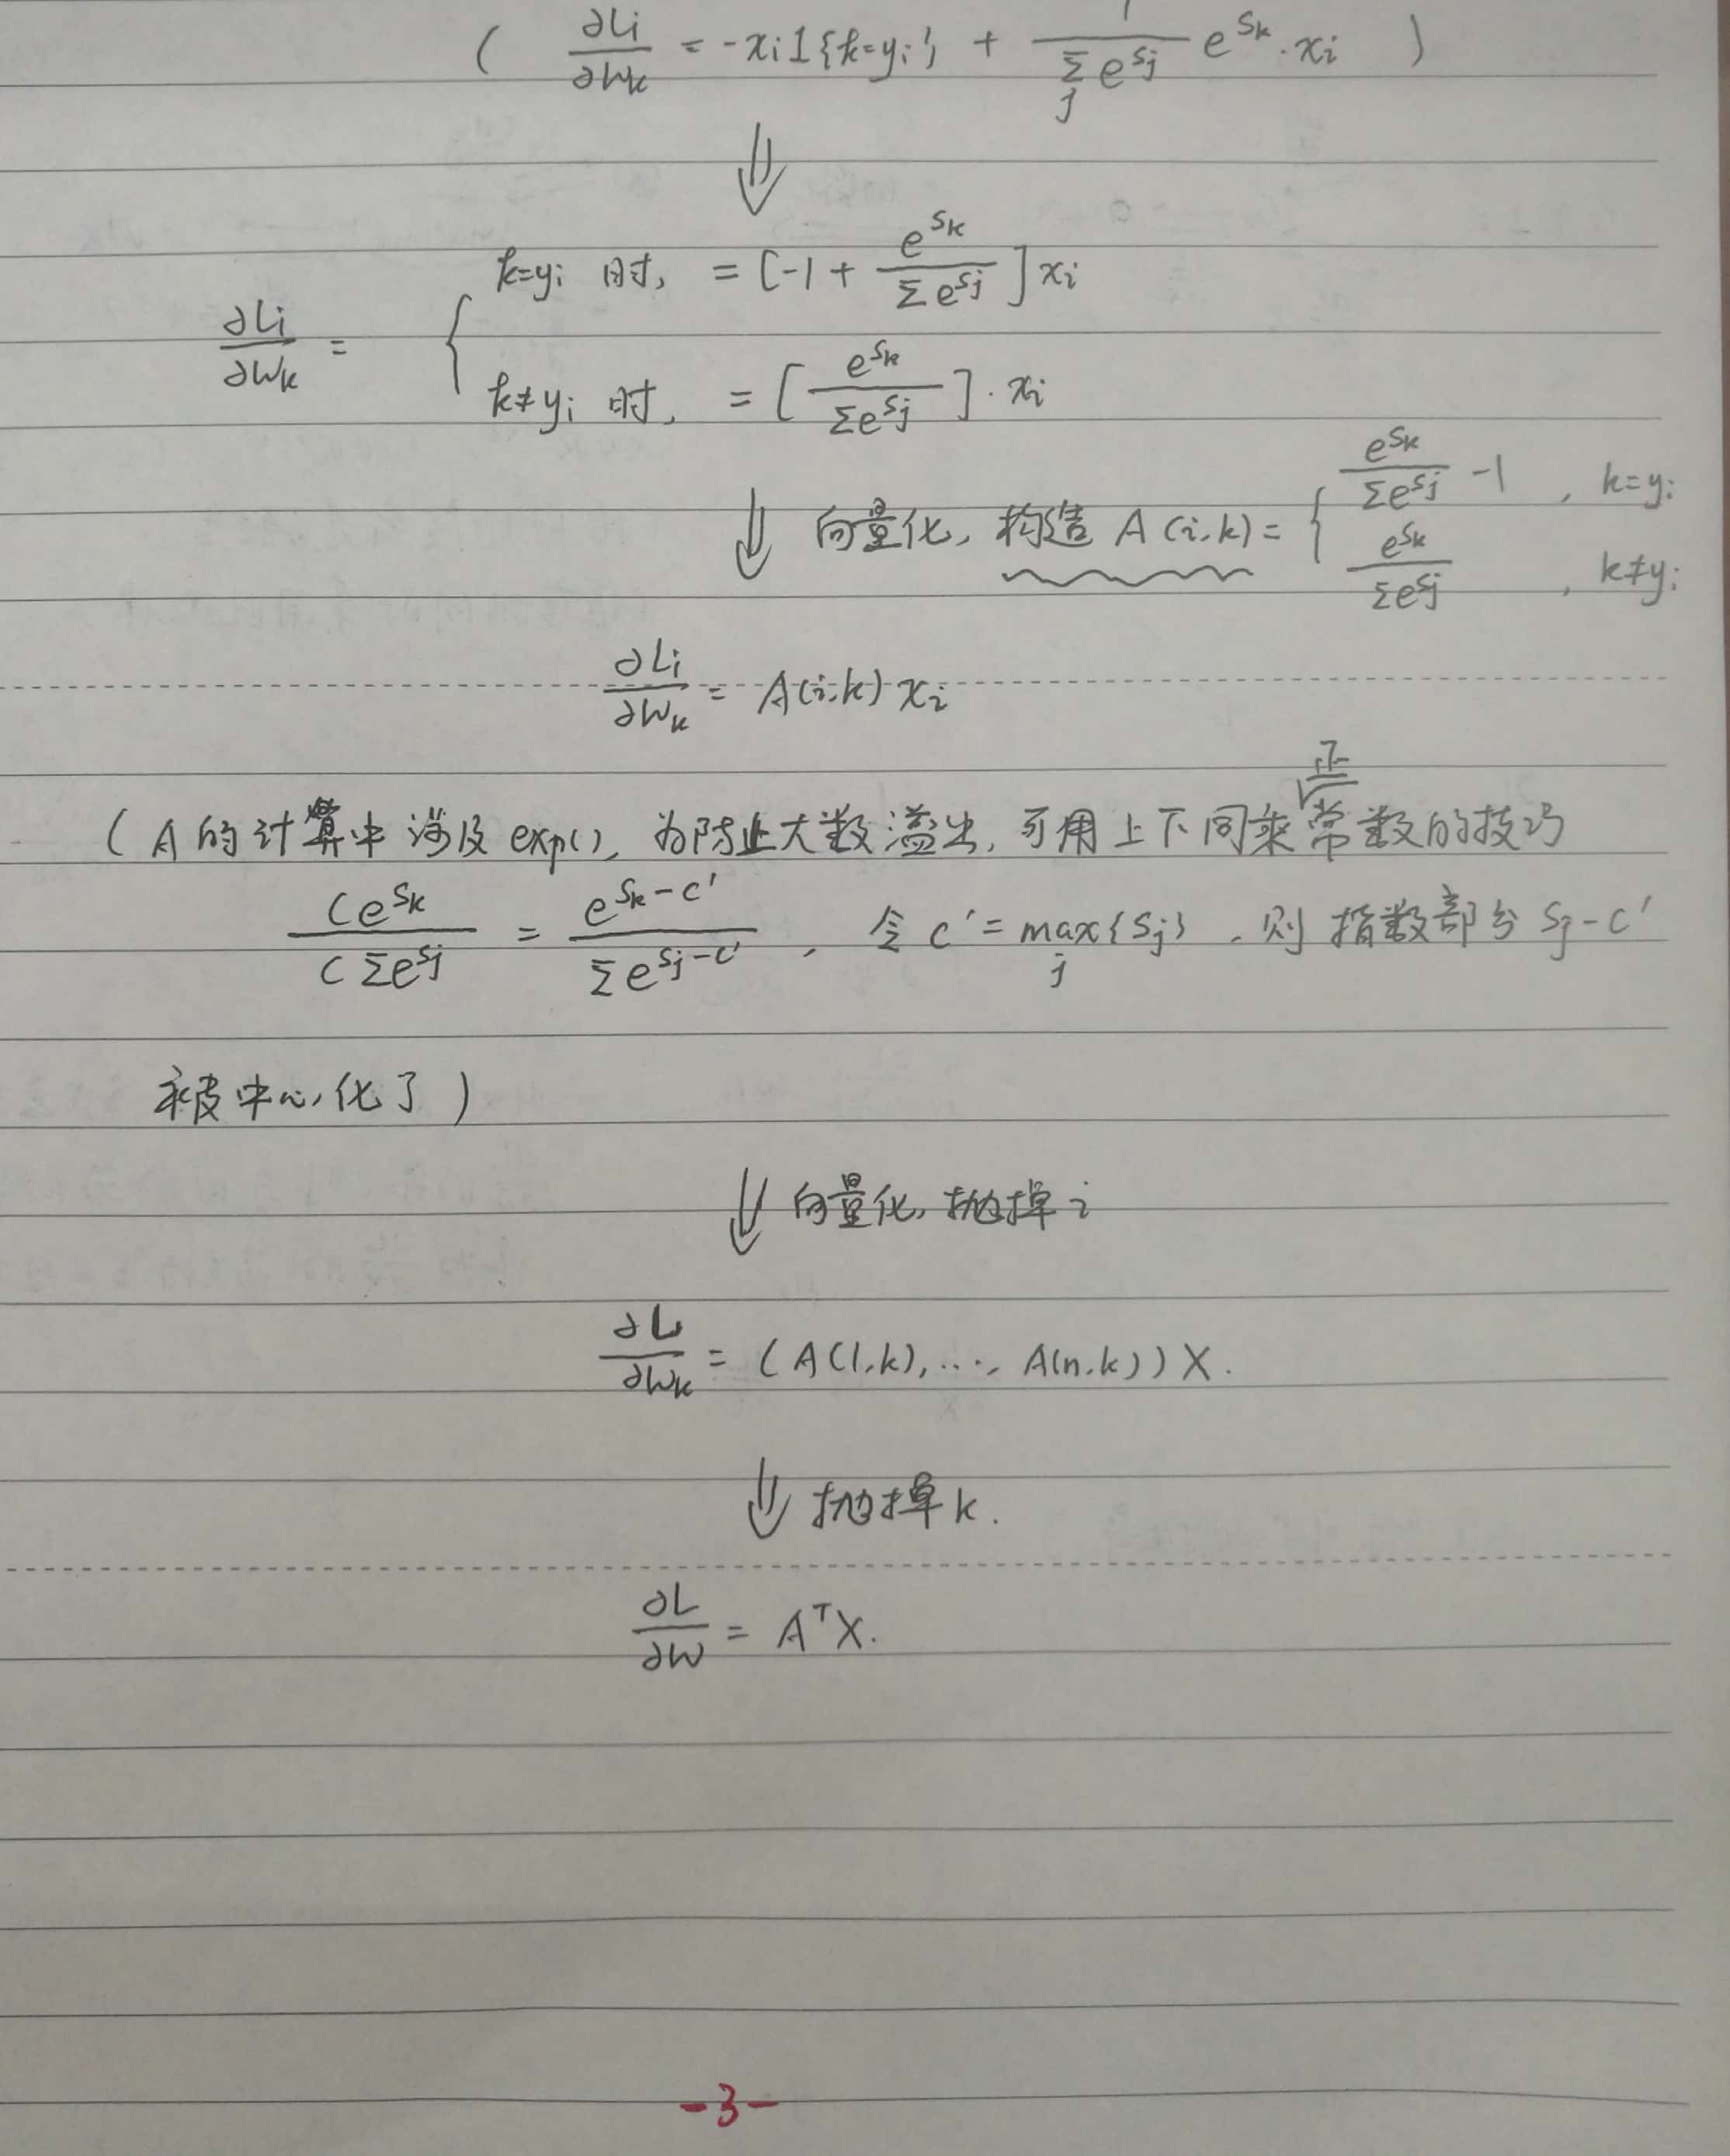 ( ∂Li/∂Wk = -xi 1{k=yi} + 1/(Σ_j e^{Sj}) e^{Sk} · xi )
⇓
∂Li/∂Wk = { k=yi 时, = [-1 + e^{Sk}/Σe^{Sj}] xi
k≠yi 时, = [e^{Sk}/Σe^{Sj}] · xi
⇓ 向量化, 构造 A(i,k) = { e^{Sk}/Σe^{Sj} -1 , k=yi
e^{Sk}/Σe^{Sj} , k≠yi
∂Li/∂Wk = A(i,k) xi
(A的计算中涉及exp(), 为防止大数溢出, 可用上下同乘正常数的技巧
Ce^{Sk}/CΣe^{Sj} = e^{Sk-C'}/Σe^{Sj-C'} , 令 C' = max_j{Sj} , 则 指数部分 Sj-C'
被中心化了)
⇓ 向量化, 抛掉 i
∂L/∂Wk = (A(1,k), ..., A(n,k)) X.
⇓ 抛掉 k.
∂L/∂W = A^T X.
-3-